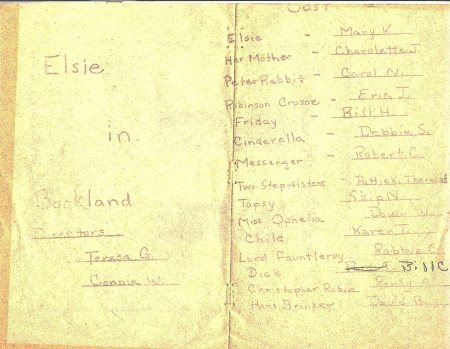 Elsie
in
Bookland
Directors
Teresa G.
Connie W.
Cast
Elsie - Mary K
Her Mother - Charolette J.
Peter Rabbit - Carol N.
Robinson Crusoe - Eric J.
Friday - Bill H.
Cinderella - Debbie S.
Messenger - Robert C.
Two Step-sisters -
Topsy Skip N
Miss Ophelia W.
Child Karen
Lord Fauntleroy Robbie C.
Dick Bill C
Christopher Robin Randy
Hans Brinker David B.